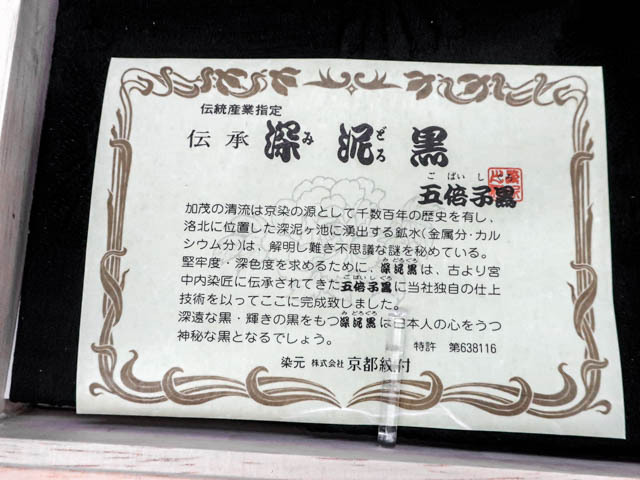 伝統産業指定
伝承 深泥黒
み どろ
ごばいし
五倍子黒
加茂の清流は京染の源として千数百年の歴史を有し、
洛北に位置した深泥ヶ池に湧出する鉱水(金属分・カル
シウム分)は、解明し難き不思議な謎を秘めている。
堅牢度・深色度を求めるために、深泥黒は、古より宮
中内染匠に伝承されてきた五倍子黒に当社独自の仕上
技術を以ってここに完成致しました。
深遠な黒・輝きの黒をもつ深泥黒は日本人の心をうつ
神秘な黒となるでしょう。
特許 第638116
染元 株式会社 京都紋付